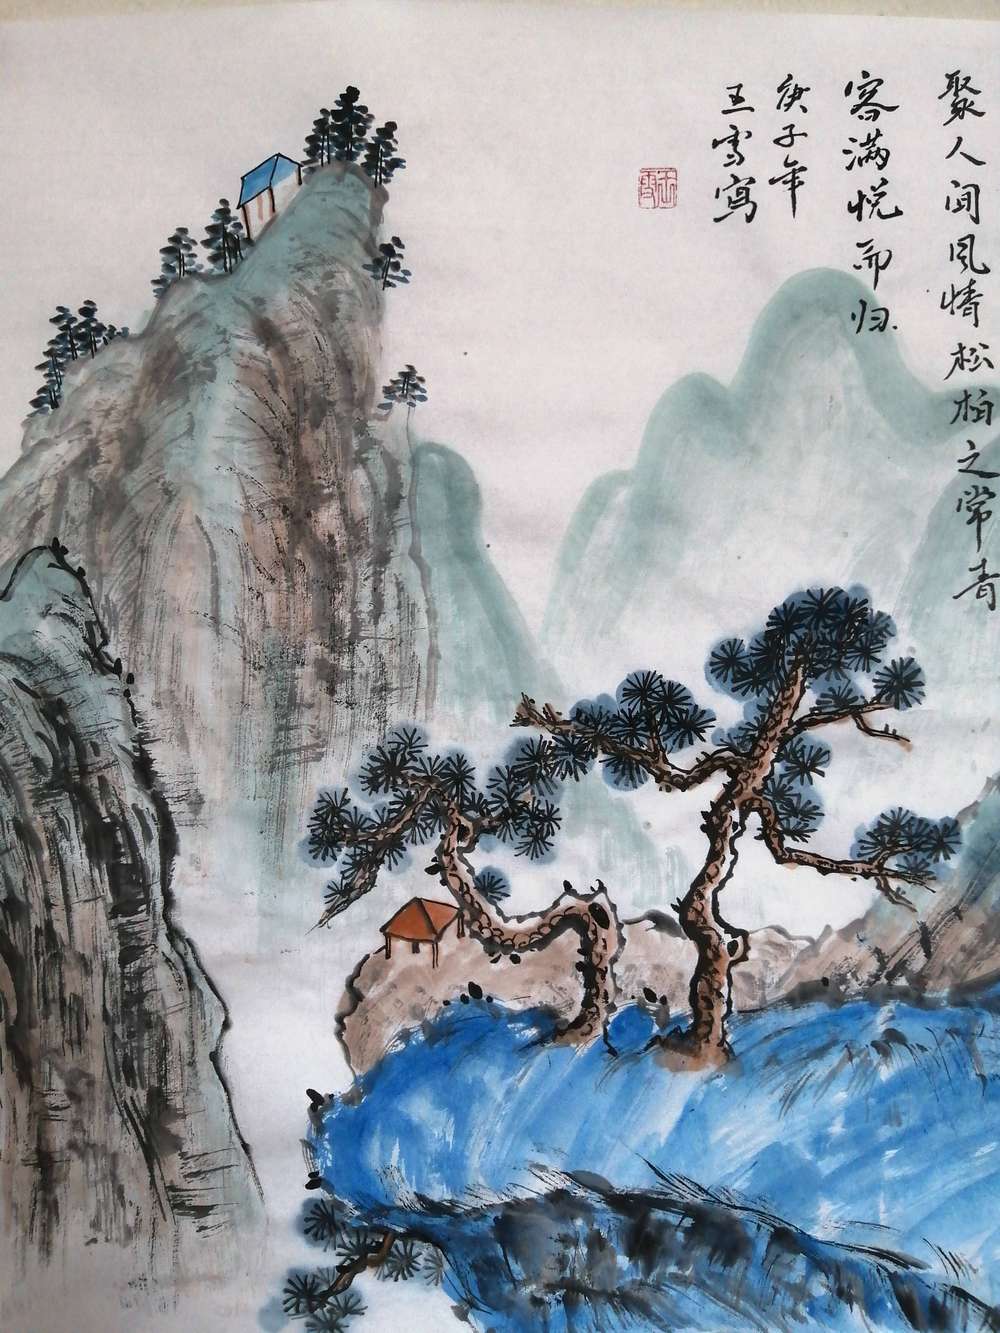 聚人间风情松柏之常青
客满悦而归
庚子年
王雪写
王雪